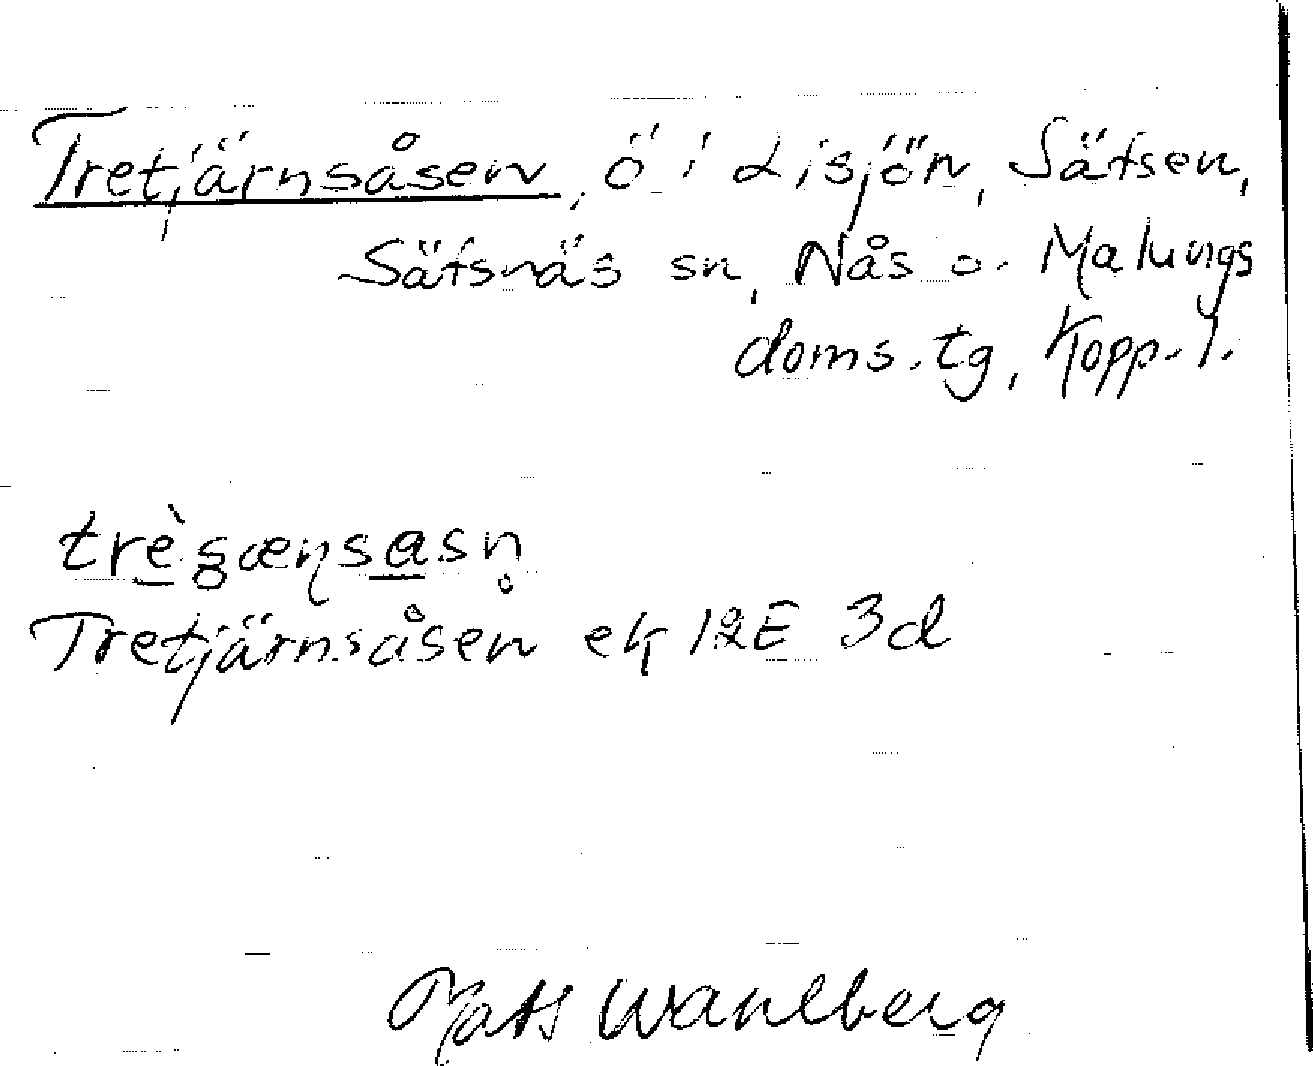 Tretjärnsåsen, ö i Lisjön, Säfsen,
Säfsnäs sn, Nås o. Malungs
doms.tg, Kopp. l.
Tretjärnsåsen ek 12E 3d
Mats Wahlberg